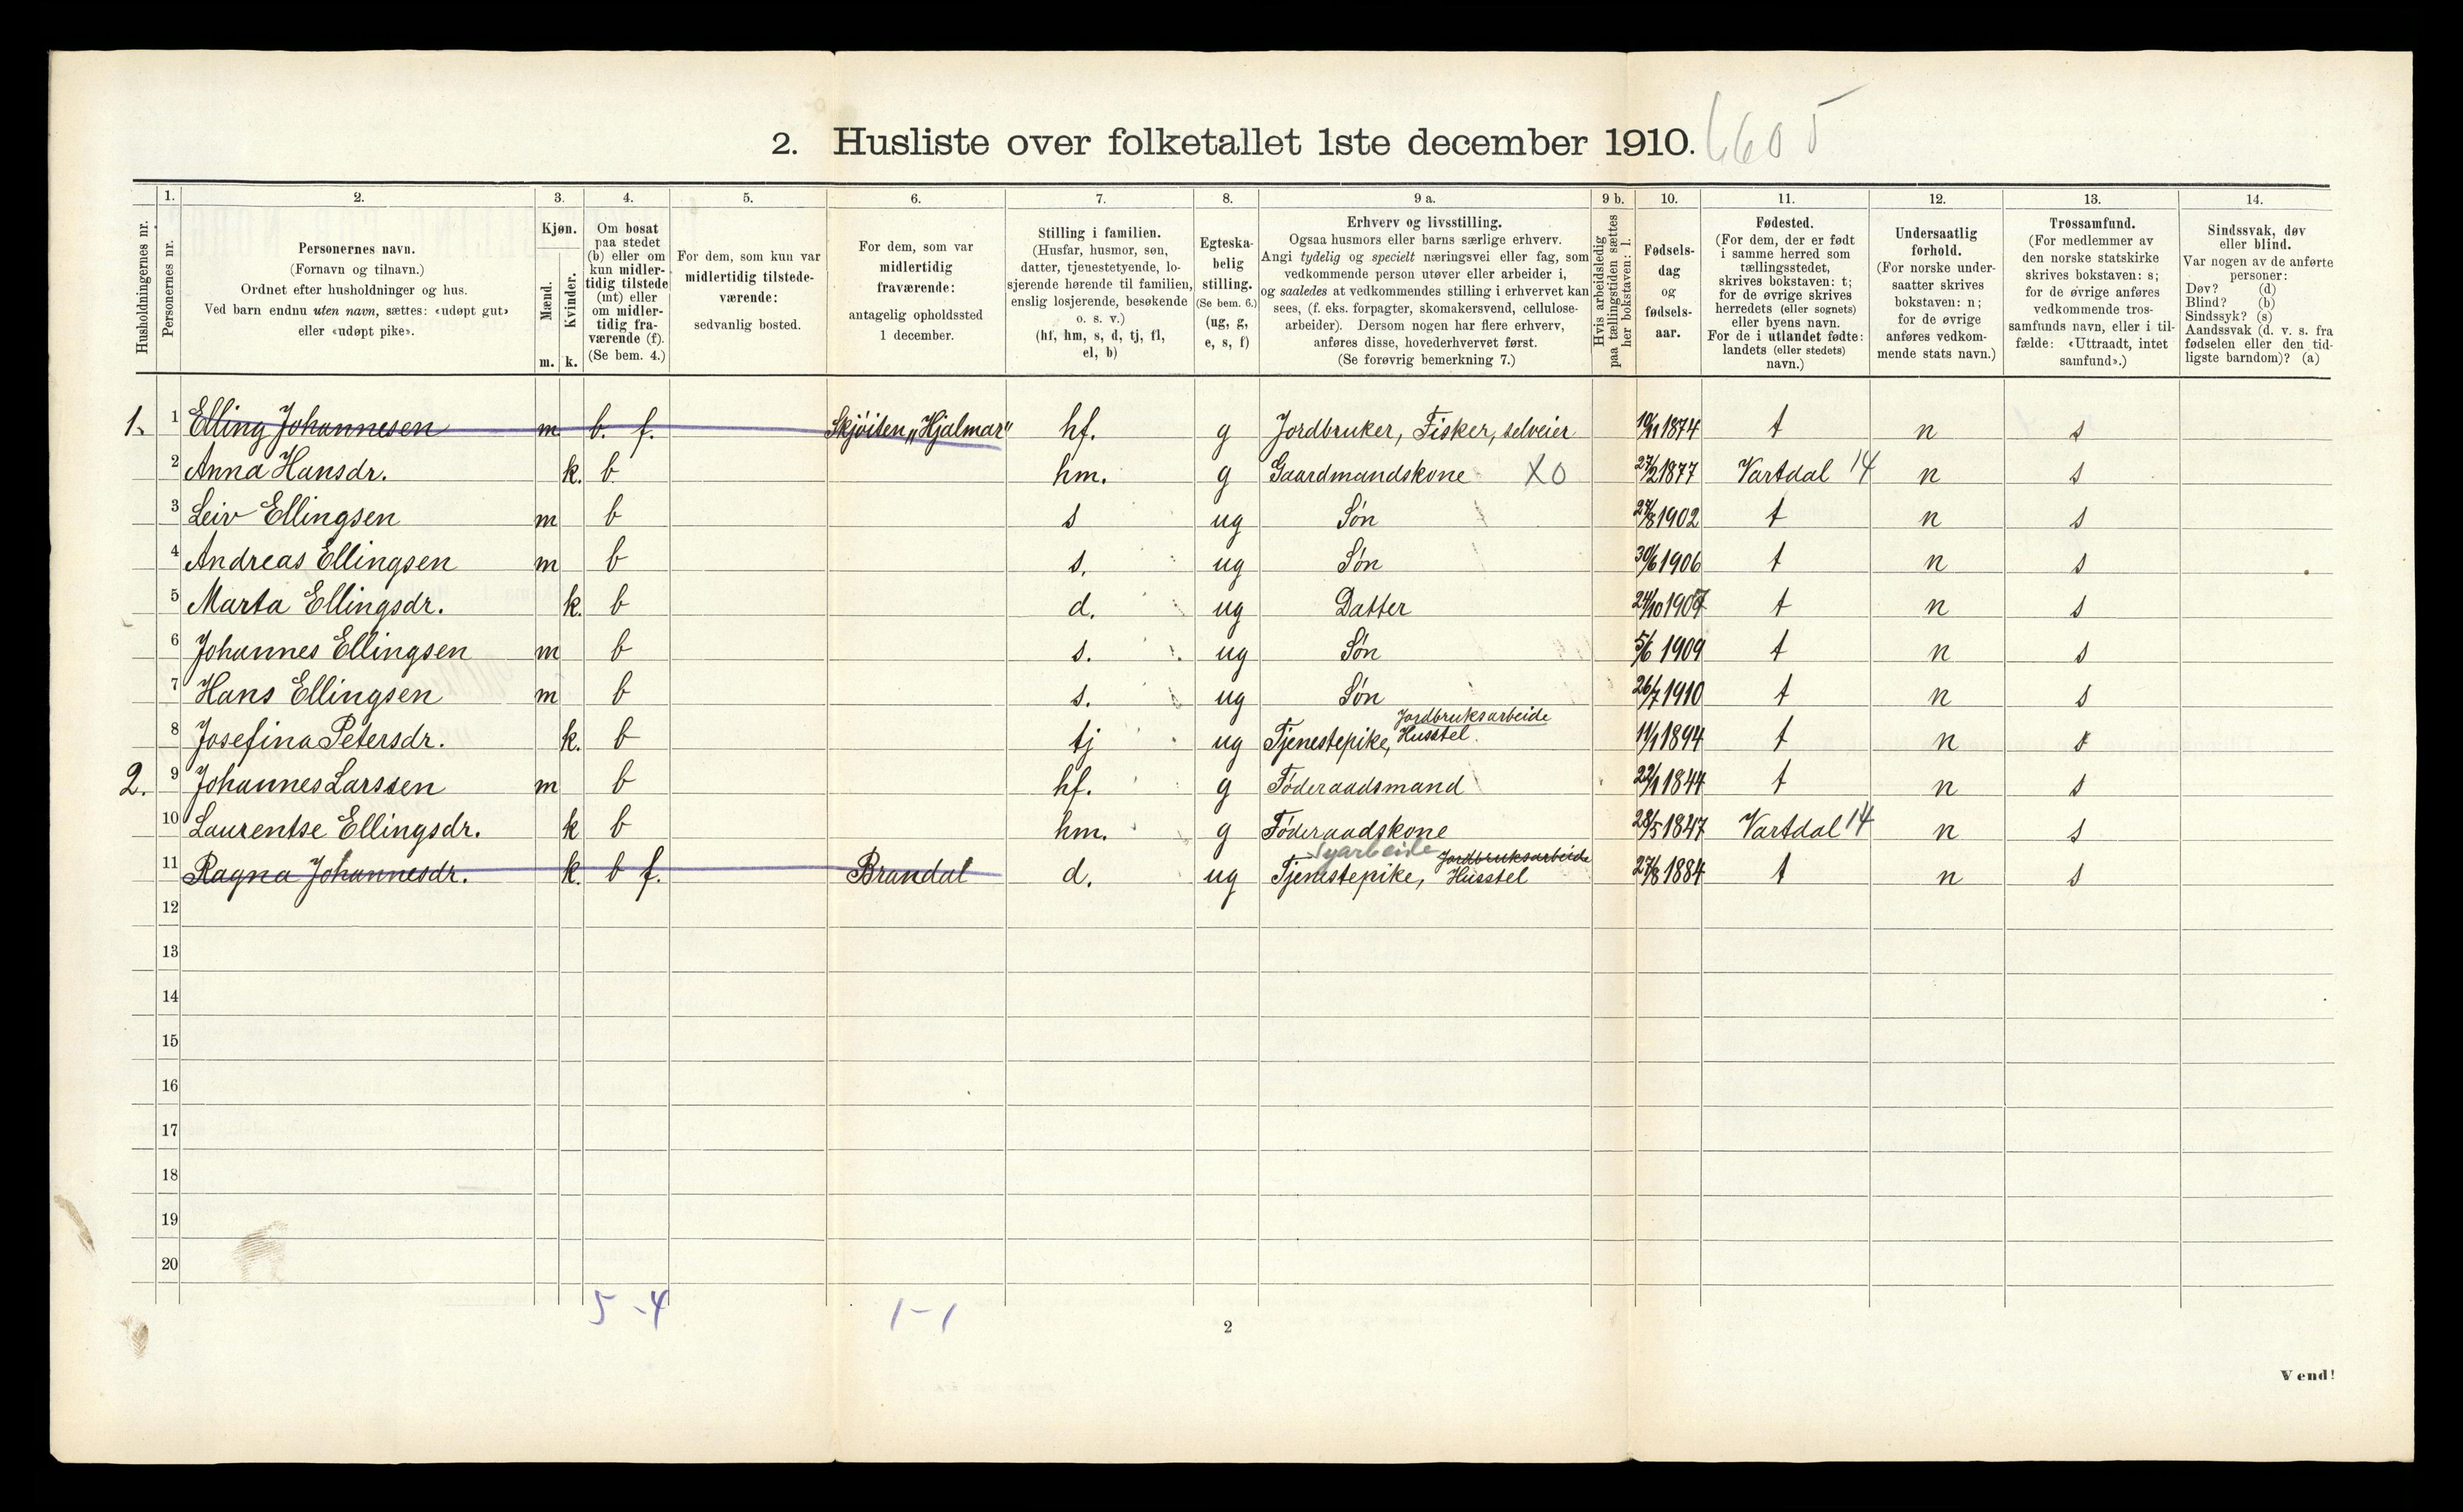 2. Husliste over folketallet 1ste december 1910. 6605
Husholdningernes nr.
1. Personernes nr.
2. Personernes navn. (Fornavn og tilnavn.) Ordnet efter husholdninger og hus. Ved barn endnu uten navn, sættes: «udøpt gut» eller «udøpt pike».
3. Kjøn. Mænd. m. Kvinder. k.
4. Om bosat paa stedet (b) eller om kun midlertidig tilstede (mt) eller om midlertidig fraværende (f). (Se bem. 4.)
5. For dem, som kun var midlertidig tilstedeværende: sedvanlig bosted.
6. For dem, som var midlertidig fraværende: antagelig opholdssted 1 december.
7. Stilling i familien. (Husfar, husmor, søn, datter, tjenestetyende, losjerende hørende til familien, enslig losjerende, besøkende o. s. v.) (hf, hm, s, d, tj, fl, el, b)
8. Egteskabelig stilling. (Se bem. 6.) (ug, g, e, s, f)
9 a. Erhverv og livsstilling. Ogsaa husmors eller barns særlige erhverv. Angi tydelig og specielt næringsvei eller fag, som vedkommende person utøver eller arbeider i, og saaledes at vedkommendes stilling i erhvervet kan sees, (f. eks. forpagter, skomakersvend, cellulosearbeider). Dersom nogen har flere erhverv, anføres disse, hovederhvervet først. (Se forøvrig bemerkning 7.)
9 b. Hvis arbeidsledig paa tællingstiden sættes her bokstaven: l.
10. Fødselsdag og fødselsaar.
11. Fødested. (For dem, der er født i samme herred som tællingsstedet, skrives bokstaven: t; for de øvrige skrives herredets (eller sognets) eller byens navn. For de i utlandet fødte: landets (eller stedets) navn.)
12. Undersaatlig forhold. (For norske undersaatter skrives bokstaven: n; for de øvrige anføres vedkommende stats navn.)
13. Trossamfund. (For medlemmer av den norske statskirke skrives bokstaven: s; for de øvrige anføres vedkommende trossamfunds navn, eller i tilfælde: «Uttraadt, intet samfund».)
14. Sindssvak, døv eller blind. Var nogen av de anførte personer: Døv? (d) Blind? (b) Sindssyk? (s) Aandssvak (d. v. s. fra fødselen eller den tidligste barndom)? (a)
1. 1 Elling Johannesen m b. f. Skjøiten „Hjalmar" hf. g Jordbruker, Fisker, selveier 19/11 1874 t n s
2 Anna Hansdr. k. b hm. g Gaardmandskone X0 27/2 1877 Vartdal 14 n s
3 Leiv Ellingsen m b s ug Søn 27/8 1902 t n s
4 Andreas Ellingsen m b s. ug Søn 30/6 1906 t n s
5 Marta Ellingsdr. k. b d. ug Datter 24/10 1907 t n s
6 Johannes Ellingsen m b s. ug Søn 5/6 1909 t n s
7 Hans Ellingsen m b s. ug Søn 26/7 1910 t n s
8 Josefina Petersdr. k. b tj ug Tjenestepike, Jordbruksarbeide Husstel. 11/1 1894 t n s
2. 9 Johannes Larssen m b hf. g Føderaadsmand 22/1 1844 t n s
10 Laurentse Ellingsdr. k b hm. g Føderaadskone 28/5 1847 Vartdal 14 n s
11 Ragna Johannesdr. k. b f. Brandal d. ug Syarbeide Tjenestepike, Jordbruksarbeide Husstel 27/8 1884 t n s
12
13
14
15
16
17
18
19
20
5 - 4 1 - 1
2
Vend!